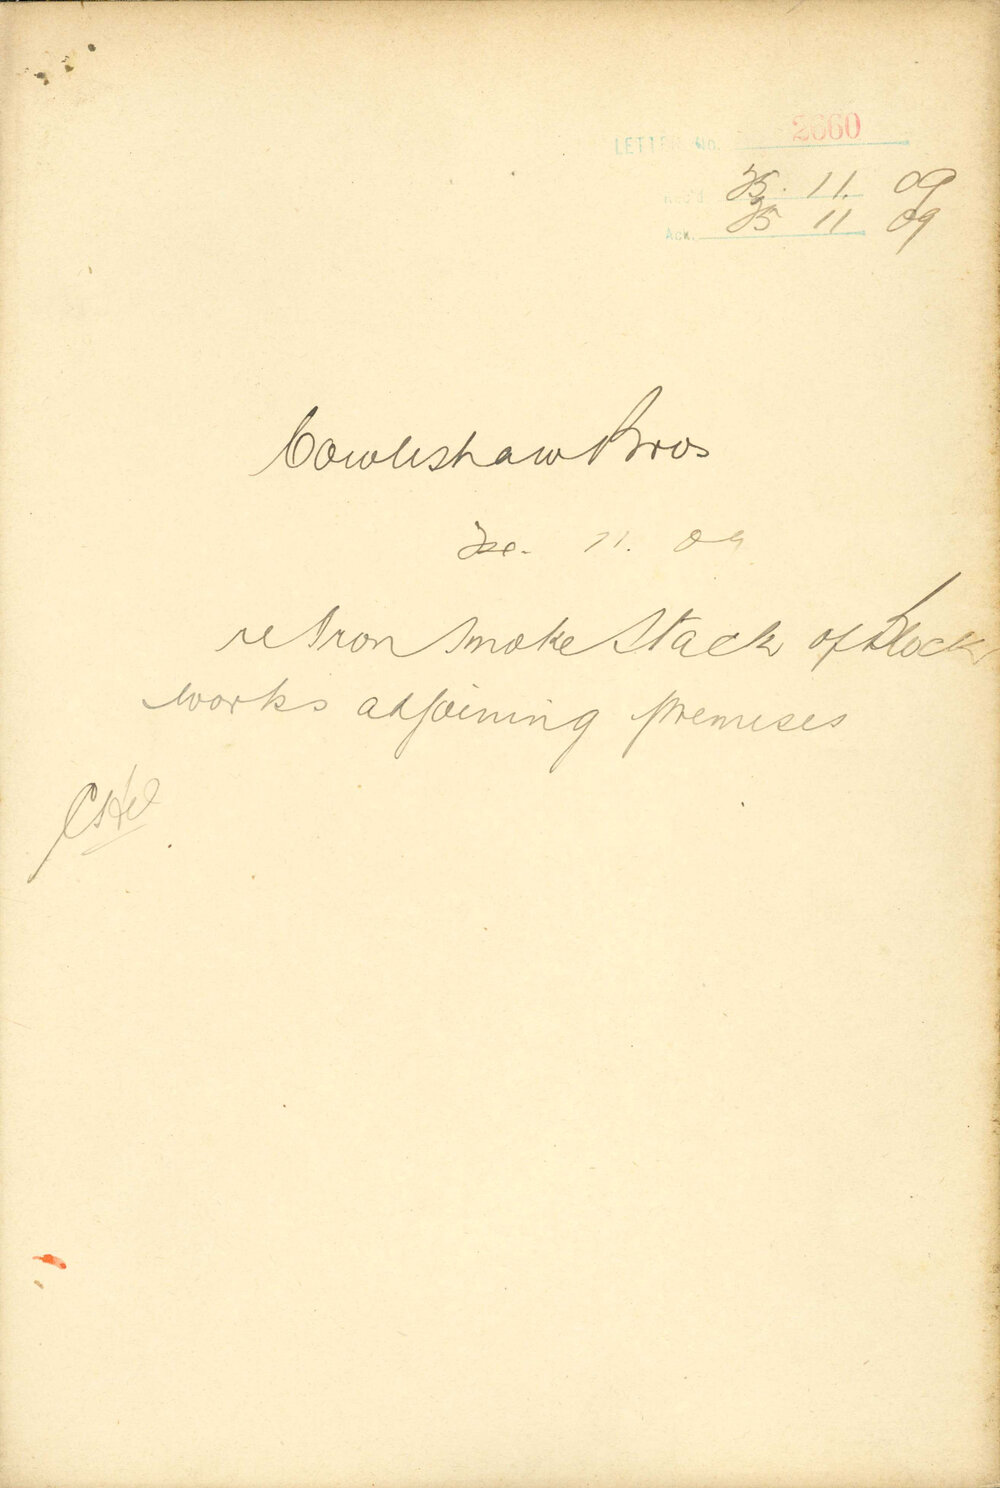 LETTER No. 2660
Rec'd 25. 11. 09
Ack. 25 11 09
Cowlishaw Bros
11. 09
re Iron Smoke Stack of Block
works adjoining premises